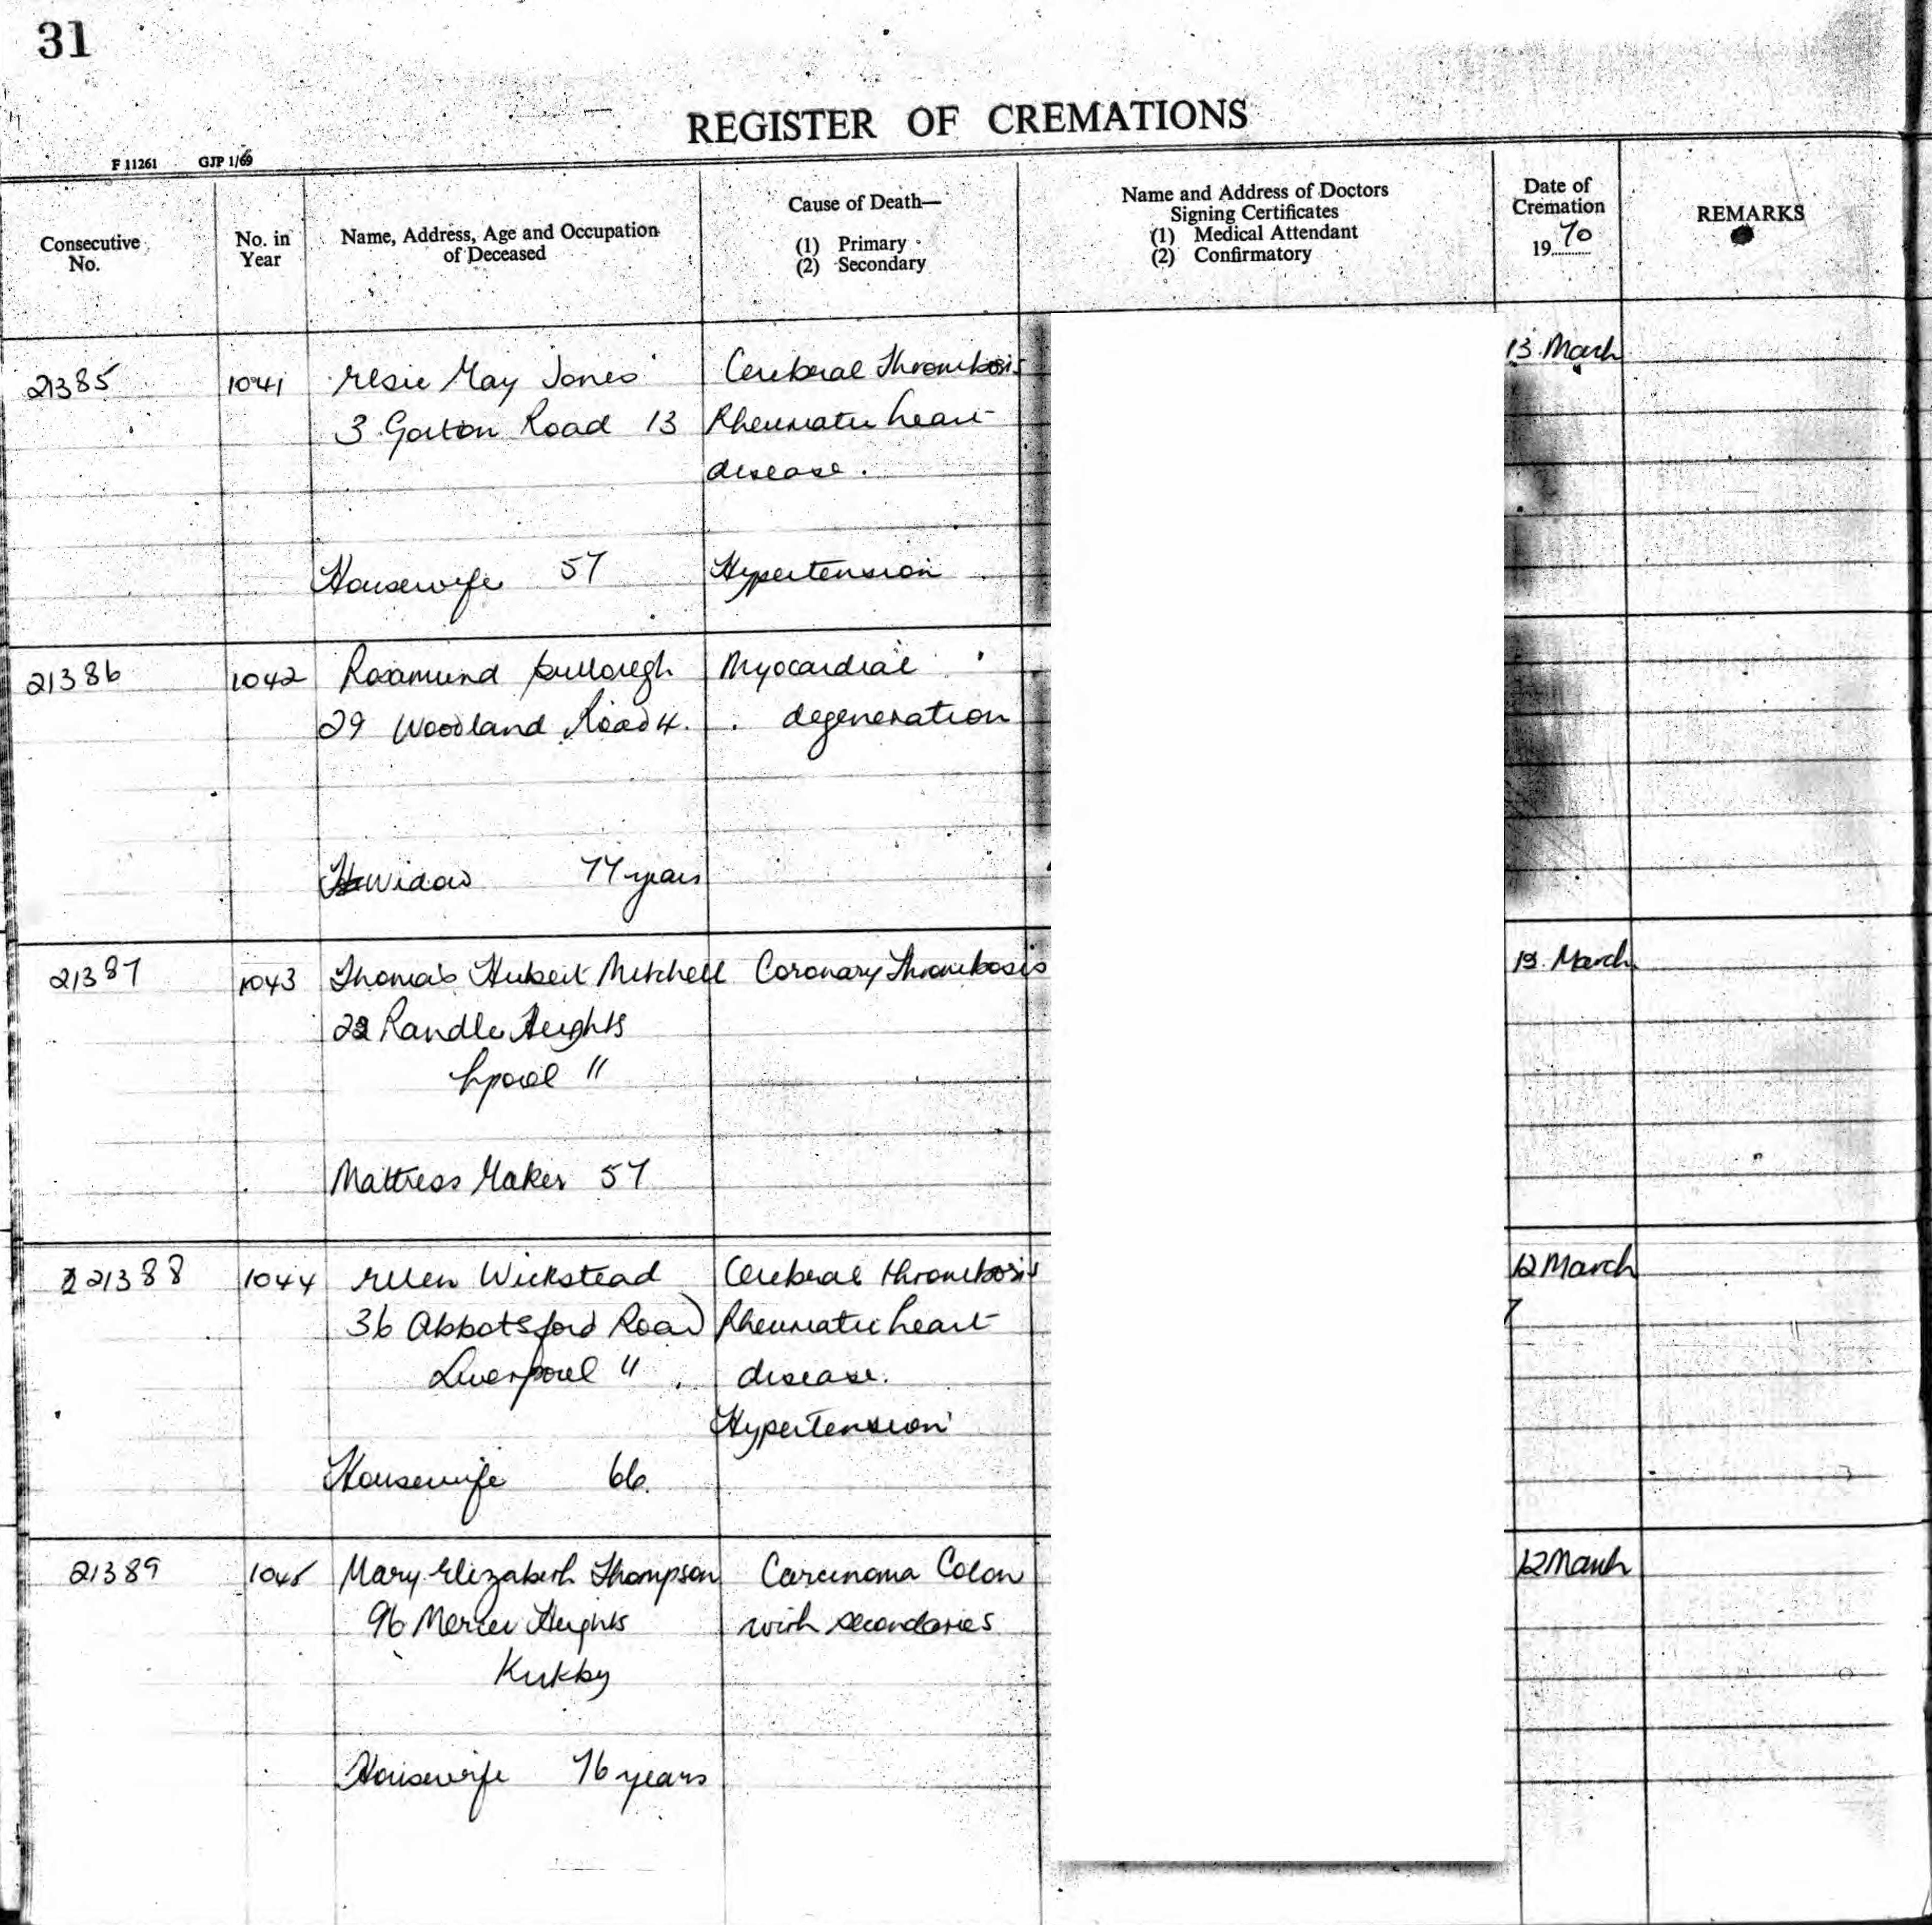 31
REGISTER OF CREMATIONS
F 11261 GJP 1/69
Consecutive No.
No. in Year
Name, Address, Age and Occupation of Deceased
Cause of Death—
(1) Primary
(2) Secondary
Name and Address of Doctors Signing Certificates
(1) Medical Attendant
(2) Confirmatory
Date of Cremation
1970
REMARKS
21385 1041 Elsie May Jones Cerebral Thrombosis 13 March
3 Gorton Road 13 Rheumatic heart
disease.
Housewife 57 Hypertension
21386 1042 Rosamund Myocardial
29 Woodland Road 4. degeneration
Widow 77 years
21387 1043 Thomas Hubert Mitchell Coronary Thrombosis 13 March
22 Randle Heights
Lpool 11
Mattress Maker 57
21388 1044 Ellen Wickstead Cerebral thrombosis 12 March
36 Abbotsford Road Rheumatic heart
Liverpool 11 disease.
Hypertension
Housewife 66.
21389 1045 Mary Elizabeth Thompson Carcinoma Colon 12 March
96 Mercer Heights with secondaries
Kirkby
Housewife 76 years